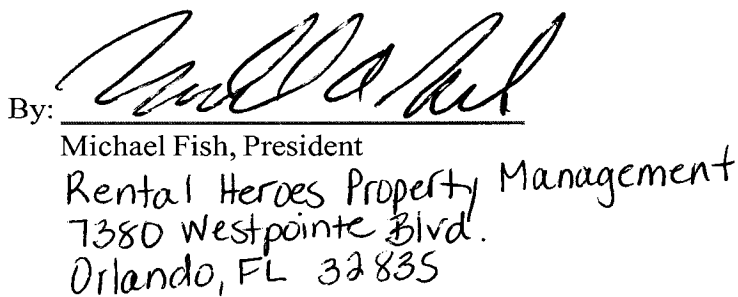 By:
Michael Fish, President
Rental Heroes Property Management
7380 Westpointe Blvd.
Orlando, FL 32835